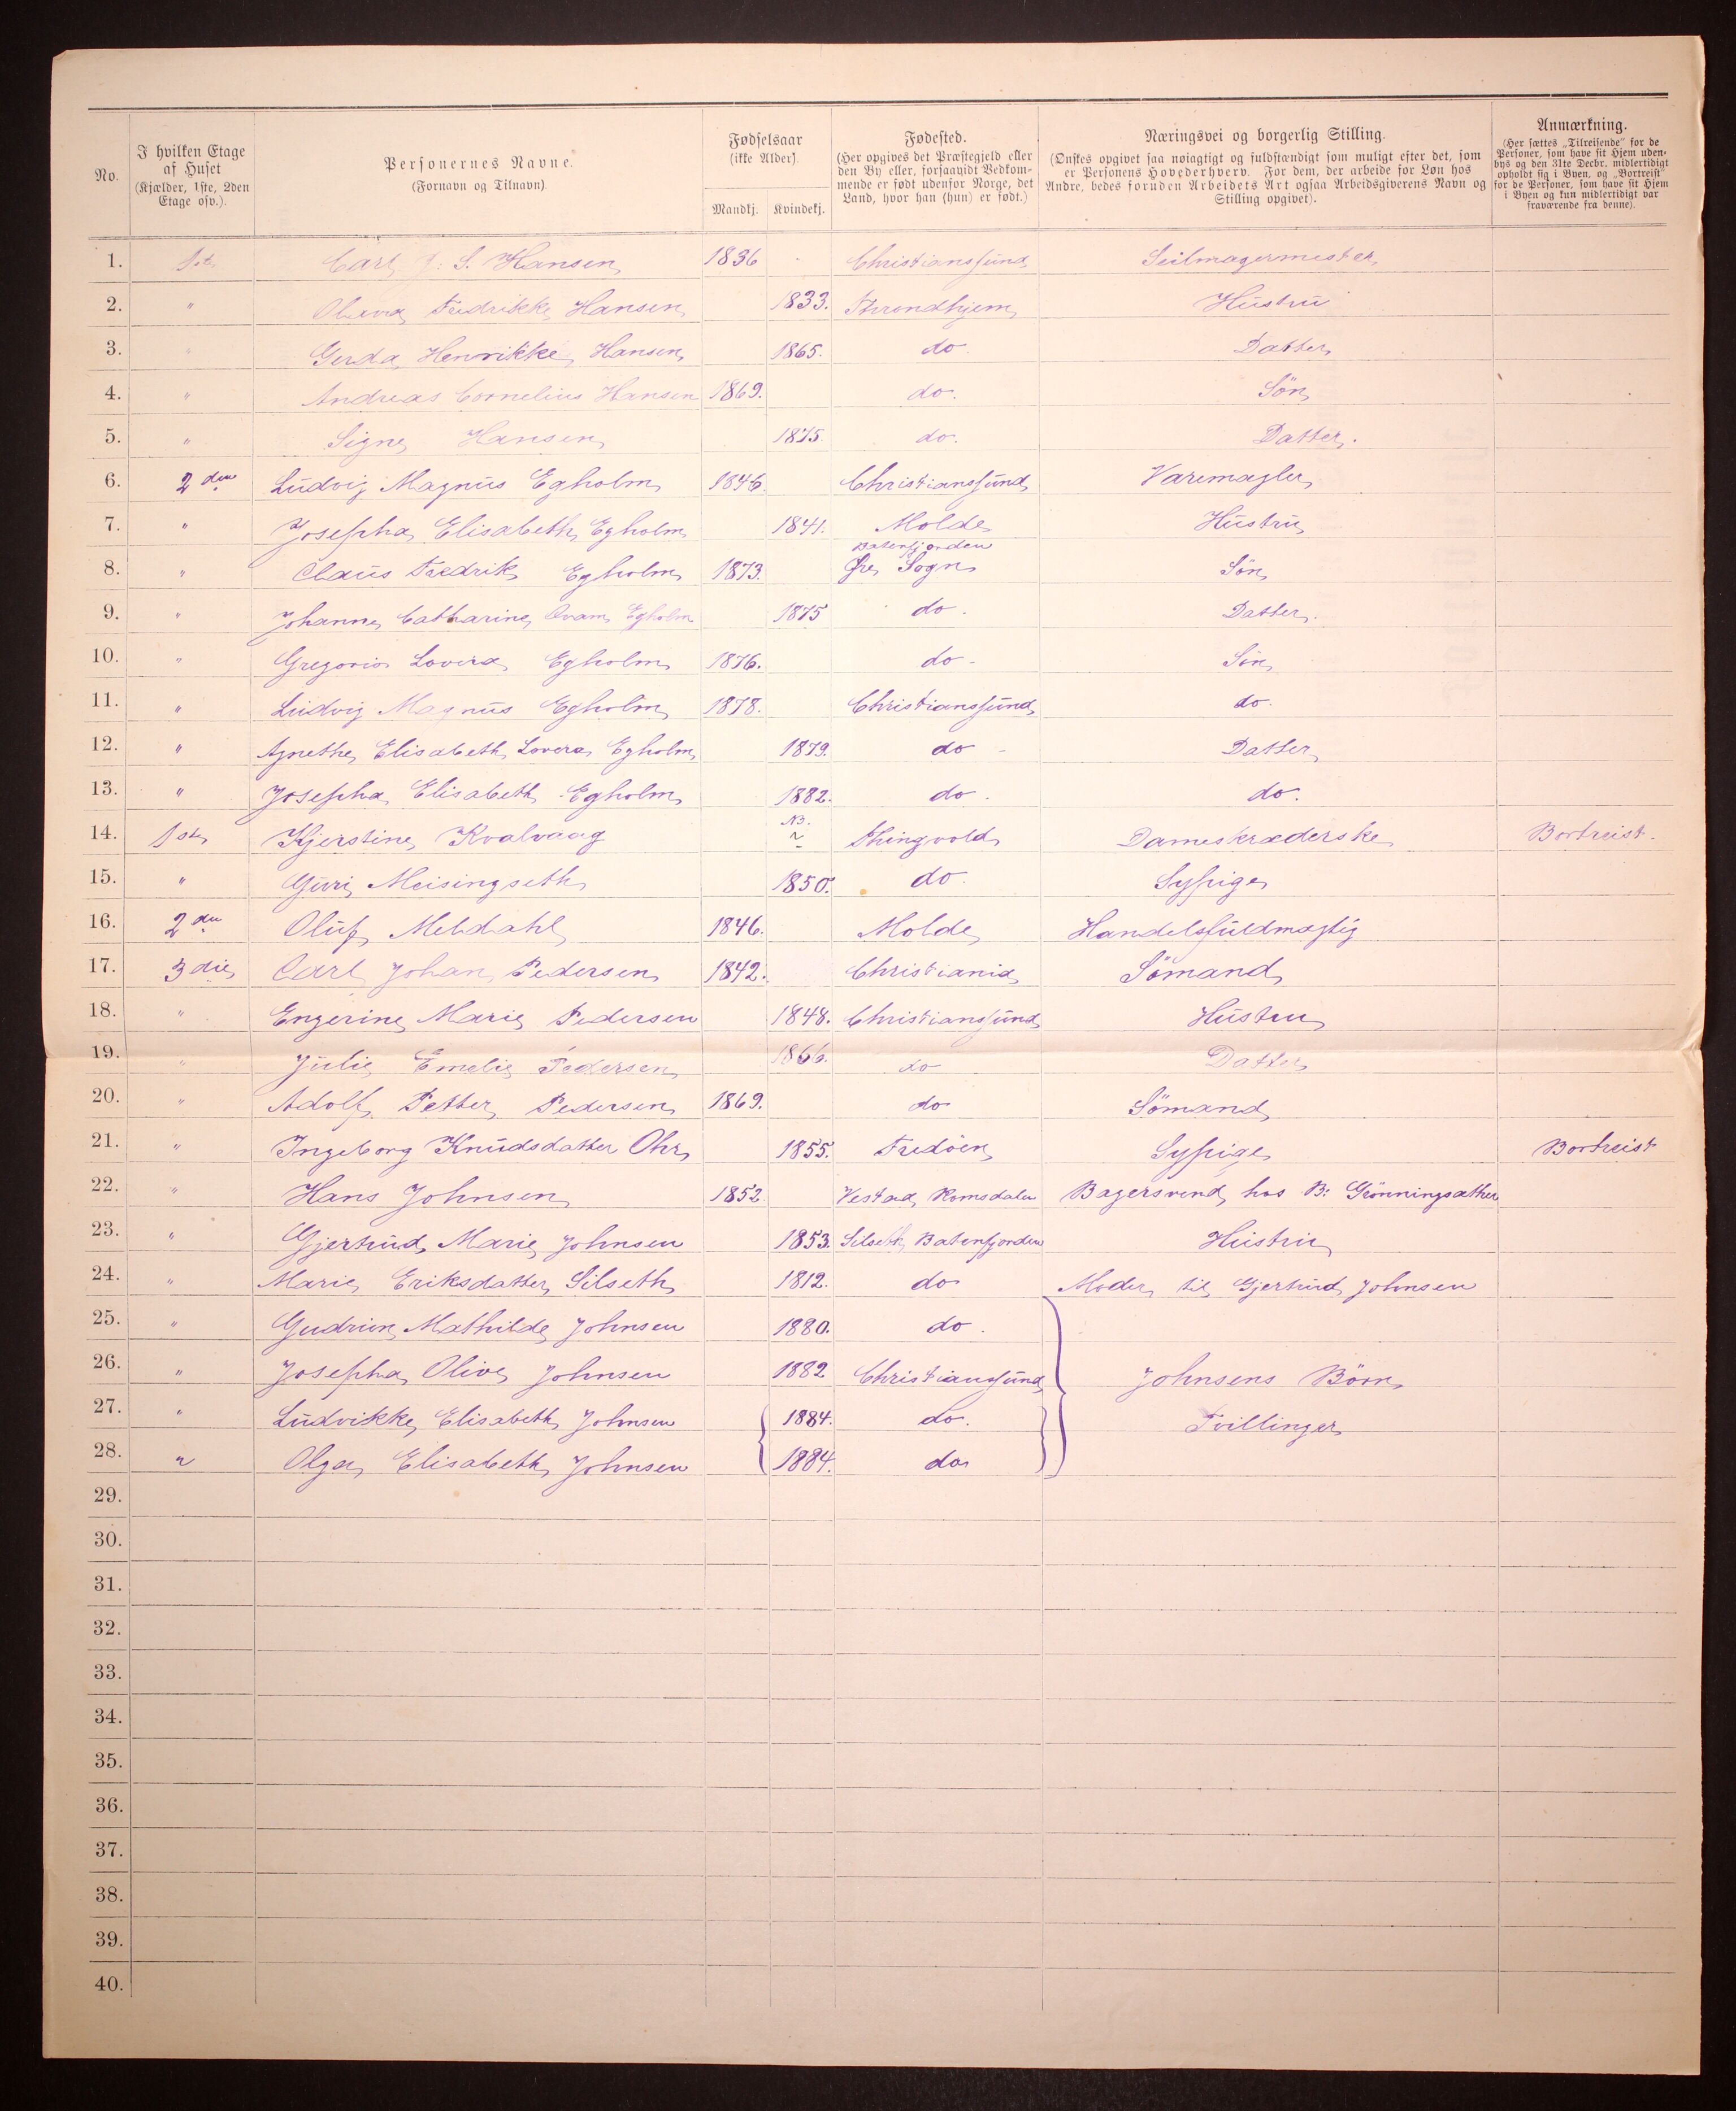 No.
I hvilken Etage af Huset (Kjælder, 1ste, 2den Etage osv.).
Personernes Navne. (Fornavn og Tilnavn).
Fødselsaar (ikke Alder). Mandkj. Kvindekj.
Fødested. (Her opgives det Præstegjeld eller den By eller, forsaavidt Vedkommende er født udenfor Norge, det Land, hvor han (hun) er født.)
Næringsvei og borgerlig Stilling. (Ønskes opgivet saa nøiagtigt og fuldstændigt som muligt efter det, som er Personens Hovederhverv. For dem, der arbeide for Løn hos Andre, bedes foruden Arbeidets Art ogsaa Arbeidsgiverens Navn og Stilling opgivet).
Anmærkning. (Her sættes „Tilreisende“ for de Personer, som have sit Hjem udenbys og den 31te Decbr. midlertidigt opholdt sig i Byen, og „Bortreist“ for de Personer, som have sit Hjem i Byen og kun midlertidigt var fraværende fra denne).
1. 1ste Carl J: S. Hansen 1836 Christianssund Seilmagermester
2. " Fredrikke Hansen 1833. Throndhjem Hustru
3. " Gerda Henrikke Hansen 1865. do Datter
4. " Andreas Cornelius Hansen 1869. do. Søn
5. " Signe Hansen 1875 do. Datter.
6. 2den Ludvig Magnus Egholm 1846. Christianssund Varemægler
7. " Josepha Elisabeth Egholm 1841. Molde Hustru
8. " Claus Fredrik Egholm 1873. Batenfjorden Øre Sogn Søn
9. " Johanne Catharine Egholm 1875 do. Datter.
10. " Gregorio Lovera Egholm 1876. do. Søn
11. " Ludvig Magnus Egholm 1878. Christianssund do.
12. " Agnethe Elisabeth Lovera Egholm 1879. do Datter
13. " Josepha Elisabeth Egholm 1882. do. do.
14. 1ste Kjerstine Kvalvaag NB. ~ Thingvold Dameskrædderske Bortreist.
15. " Guri Meisingseth 1850. do. Sypige
16. 2den Oluf Meldahl 1846. Molde Handelsfuldmægtig
17. 3die Carl Johan Pedersen 1842. Christiania Sömand
18. " Engerine Marie Pedersen 1848. Christianssund Hustru
19. " Julie Emelie Pedersen 1866. do Datter
20. " Adolf Petter Pedersen 1869. do Sömand
21. " Ingeborg Knudsdatter Ohr 1855. Fredöen Sypige Bortreist
22. " Hans Johnsen 1852 Vestad Romsdalen Bagersvend hos B: Grönningsæther
23. " Gjertrud Marie Johnsen 1853. Silseth Batenfjorden Hustru
24. " Marie Eriksdatter Silseth 1812. do Moder til Gjertrud Johnsen
25. " Gudrun Mathilde Johnsen 1880. do.
26. " Josepha Olive Johnsen 1882 Christianssund Johnsens Börn
27. " Ludvikke Elisabeth Johnsen 1884. do. Tvillinger
28. " Olga Elisabeth Johnsen 1884. do
29.
30.
31.
32.
33.
34.
35.
36.
37.
38.
39.
40.